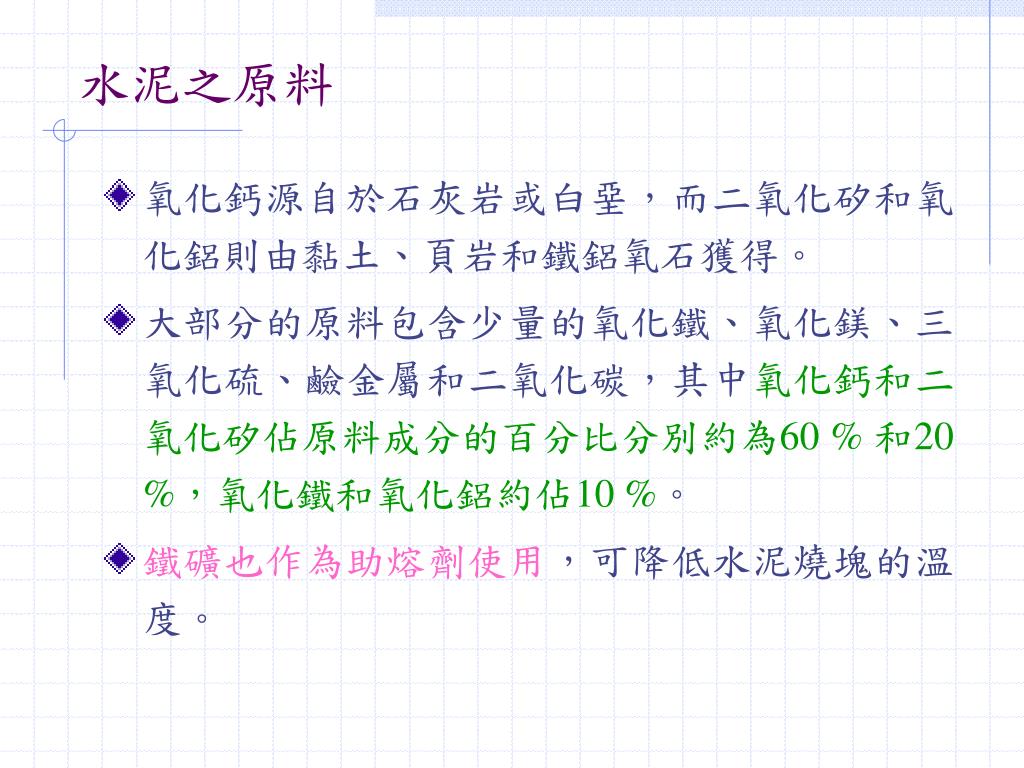 水泥之原料
氧化鈣源自於石灰岩或白堊，而二氧化矽和氧
化鋁則由黏土、頁岩和鐵鋁氧石獲得。
大部分的原料包含少量的氧化鐵、氧化鎂、三
氧化硫、鹼金屬和二氧化碳，其中氧化鈣和二
氧化矽佔原料成分的百分比分別約為60 % 和20
%，氧化鐵和氧化鋁約佔10 %。
鐵礦也作為助熔劑使用，可降低水泥燒塊的溫
度。